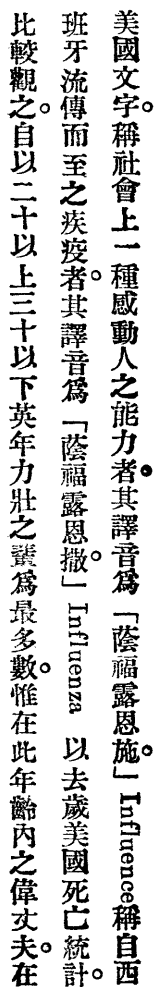 美國文字。稱社會上一種感動人之能力者。其譯音爲「蔭福露恩施。」Influence稱自西
班牙流傳而至之疾疫者。其譯音爲「蔭福露恩撒。」Influenza 以去歲美國死亡統計。
比較觀之。自以二十以上三十以下英年力壯之輩爲最多數。惟在此年齡內之偉丈夫。在